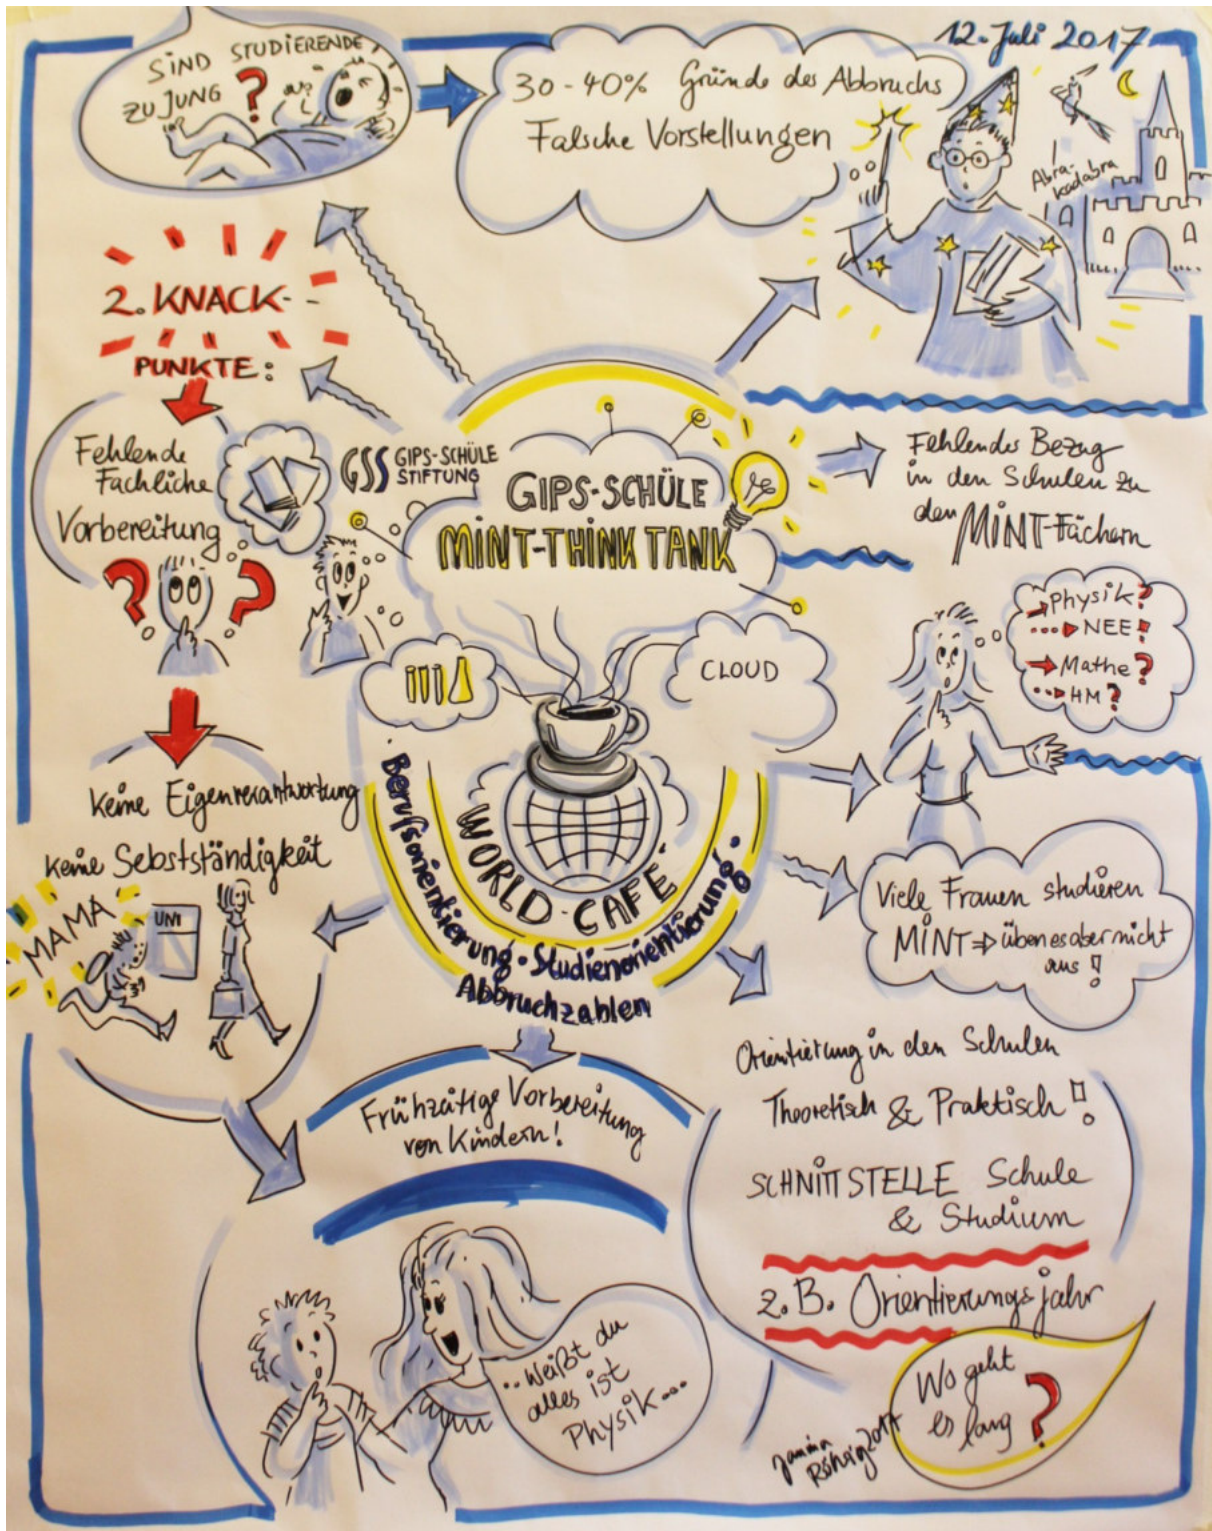 12. Juli 2017
SIND STUDIERENDE
ZU JUNG ?
30-40% Gründe des Abbruchs
Falsche Vorstellungen
Abra-
kadabra
2. KNACK-
PUNKTE:
Fehlende
Fachliche
Vorbereitung
? ?
GSS GIPS-SCHÜLE
STIFTUNG
GIPS-SCHÜLE
MINT-THINK TANK
Fehlender Bezug
in den Schulen zu
den MINT-Fächern
Physik?
NEE!
Mathe?
HM?
CLOUD
WORLD-CAFE
Berufsorientierung · Studienorientierung
Abbruchzahlen
Keine Eigenverantwortung
Keine Sebstständigkeit
MAMA
UNI
Viele Frauen studieren
MINT ⇒ üben es aber nicht
aus !
Frühzeitige Vorbereitung
von Kindern!
Orientierung in den Schulen
Theoretisch & Praktisch !
SCHNITTSTELLE Schule
& Studium
z.B. Orientierungsjahr
.. Weißt du
alles ist
Physik...
Wo geht
es lang ?
Janina
2017